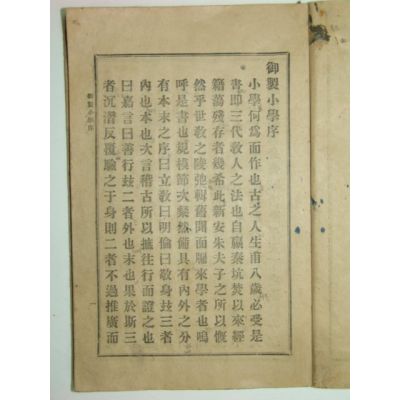 御製小學序
小學何為而作也古之人生甫八歲必受是
書即三代教人之法也自嬴秦坑焚以來經
籍蕩殘存者幾希此新安朱夫子之所以慨
然乎世教之陵弛輯舊聞而牖來學者也嗚
呼是書也規模節次粲然備具有內外之分
有本末之序曰立教曰明倫曰敬身玆三者
內也本也次言稽古所以摭往行而證之也
曰嘉言曰善行玆二者外也末也果於斯三
者沉潛反覆驗之于身則二者不過推廣而
御製小學序